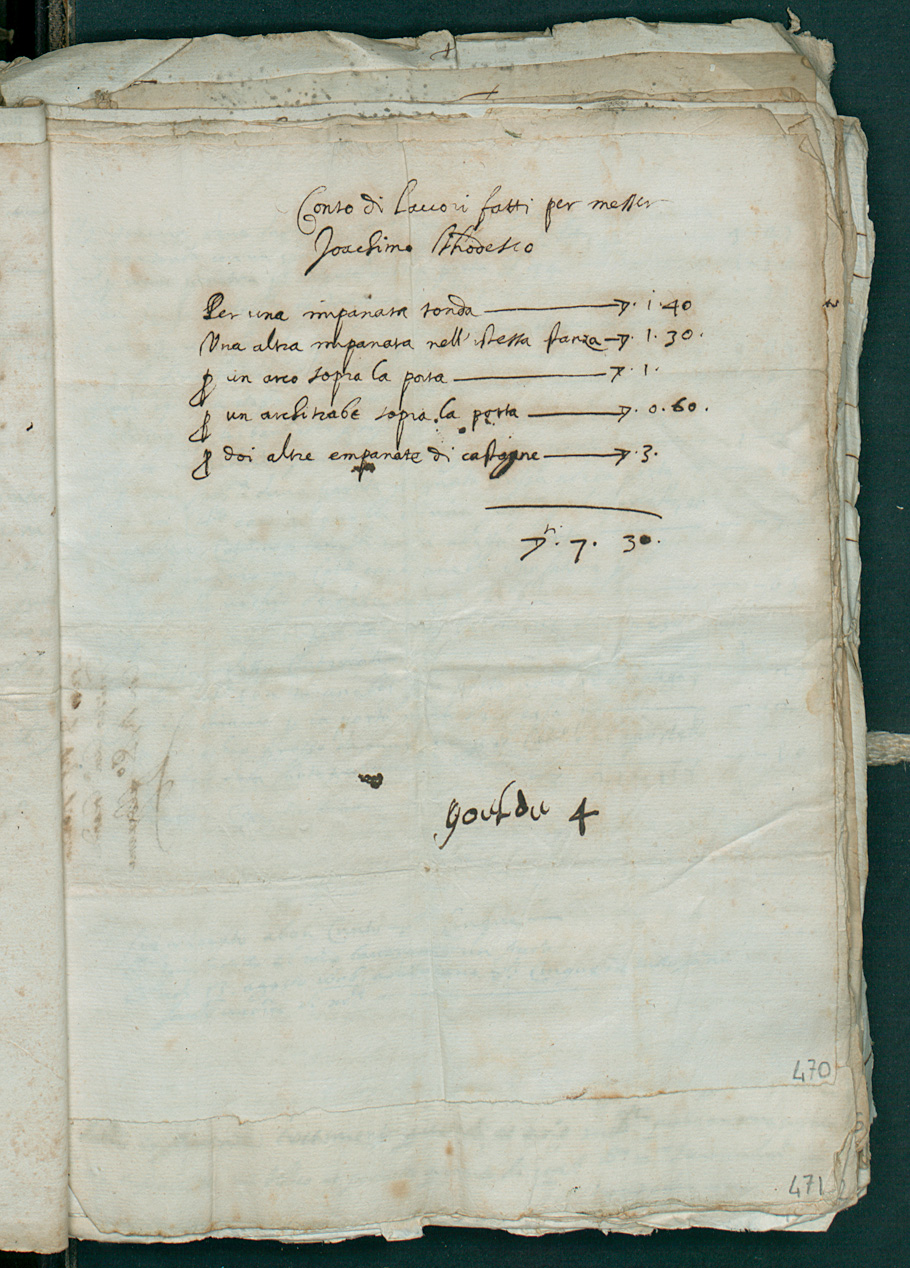 Conto di lavori fatti per messer
Joachimo Thodesco
Per una impanata tonda ▽. 1. 40
Una altra impanata nell'istessa stanza ▽. 1. 30.
ꝑ un arco sopra la porta ▽. 1.
ꝑ un architrabe sopra la porta ▽. 0. 60.
ꝑ doi altre empanate di castagne ▽. 3.
▽. 7. 30.
4
470
471